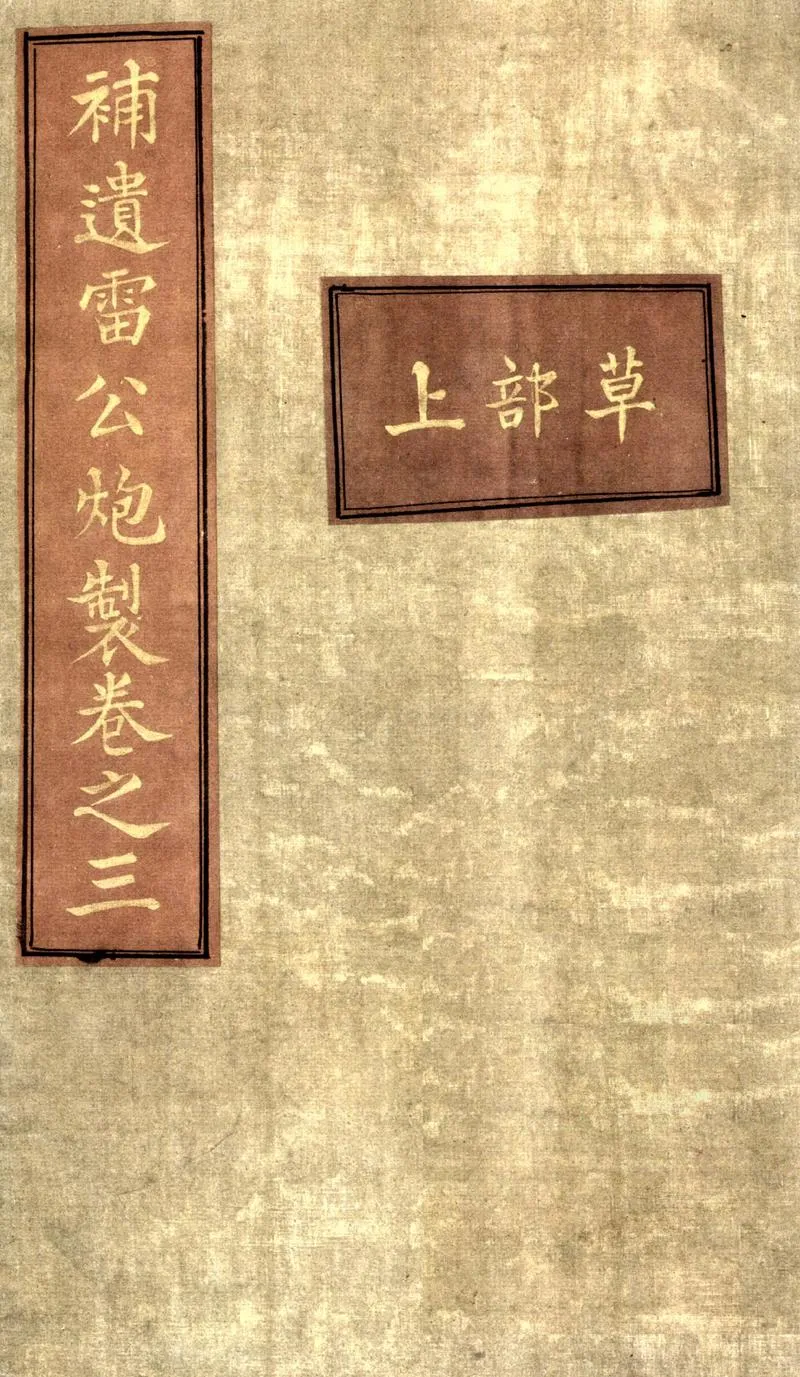 補遺雷公炮製卷之三
草部上